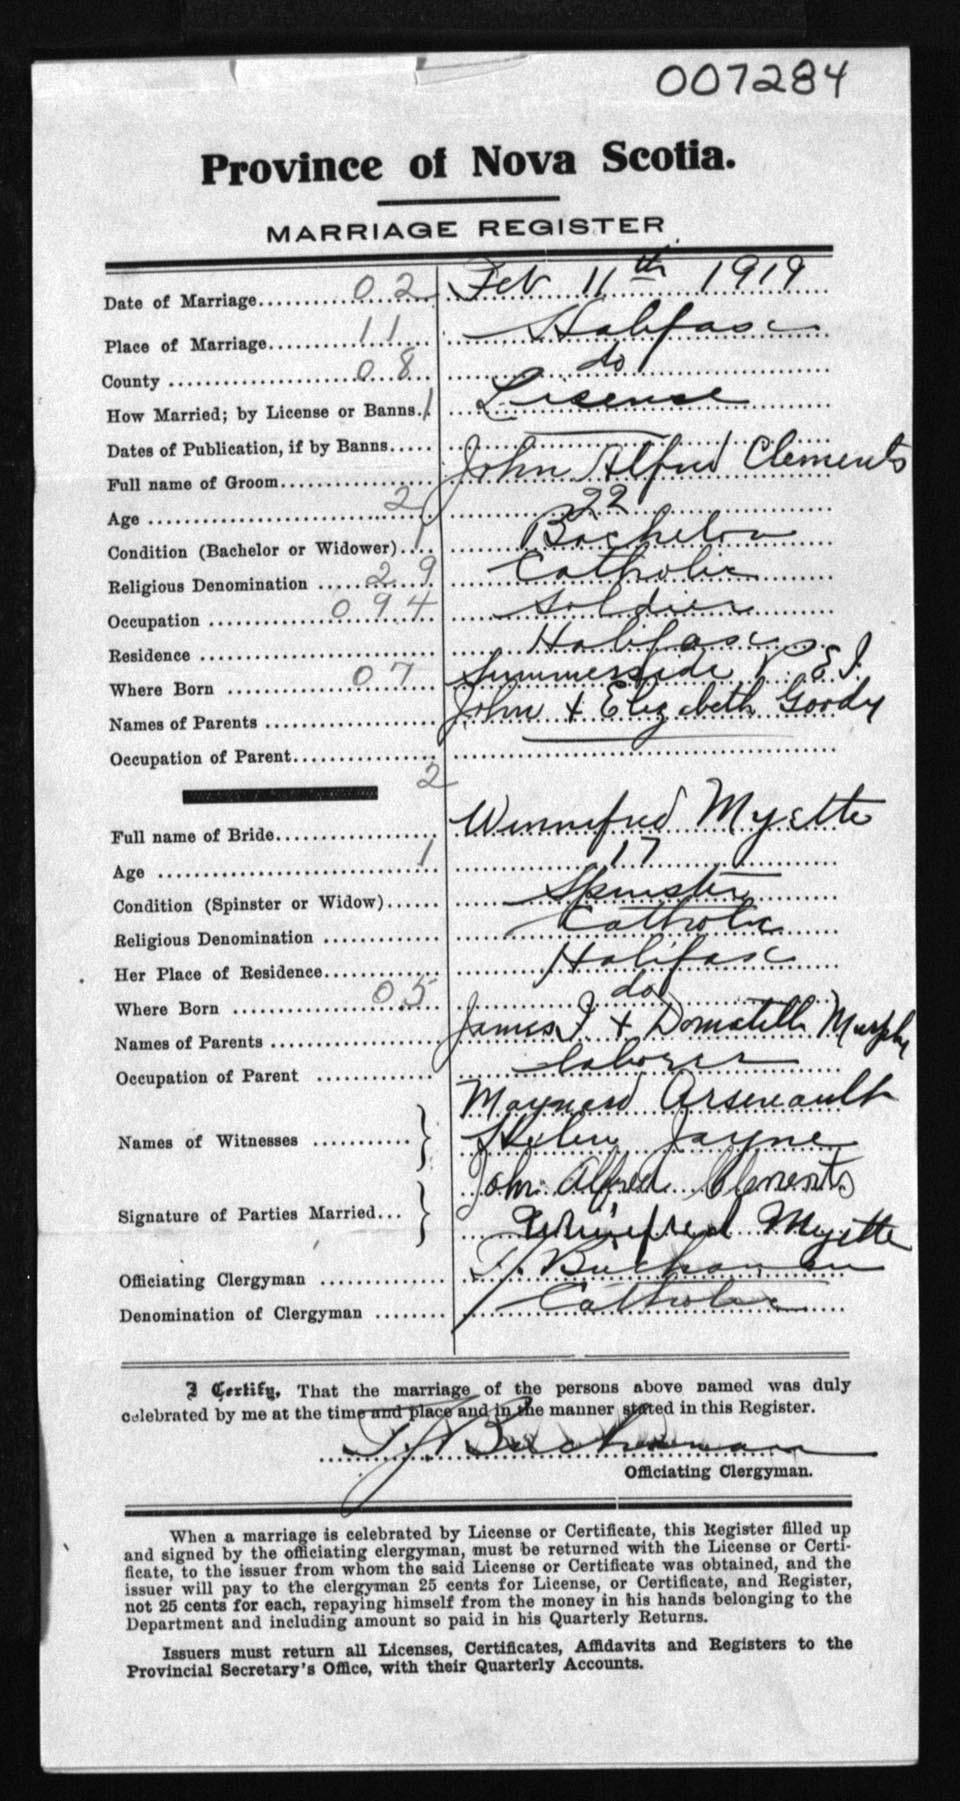 007284
Province of Nova Scotia.
MARRIAGE REGISTER
Date of Marriage 02 Feb 11th 1919
Place of Marriage 11 Halifax
County 08 do
How Married; by License or Banns. 1 Lisense
Dates of Publication, if by Banns
Full name of Groom John Alfred Clements
Age 2 22
Condition (Bachelor or Widower) 1 Bachelor
Religious Denomination 29 Catholic
Occupation 094 Soldier
Residence Halifax
Where Born 07 Summerside P E I.
Names of Parents John + Elizabeth Goody
Occupation of Parent
2
Full name of Bride Winnifred Myette
Age 1 17
Condition (Spinster or Widow) Spinster
Religious Denomination Catholic
Her Place of Residence Halifax
Where Born 05 do
Names of Parents James J + Murphy
Occupation of Parent laborer
Maynard Arseneault
Names of Witnesses } Helen Jayne
John Alfred Clements
Signature of Parties Married... } Winifred Myette
Officiating Clergyman T. J. Buchanan
Denomination of Clergyman Catholic
I Certify, That the marriage of the persons above named was duly
celebrated by me at the time and place and in the manner stated in this Register.
T. J. Buchanan
Officiating Clergyman.
When a marriage is celebrated by License or Certificate, this Register filled up
and signed by the officiating clergyman, must be returned with the License or Certi-
ficate, to the issuer from whom the said License or Certificate was obtained, and the
issuer will pay to the clergyman 25 cents for License, or Certificate, and Register,
not 25 cents for each, repaying himself from the money in his hands belonging to the
Department and including amount so paid in his Quarterly Returns.
Issuers must return all Licenses, Certificates, Affidavits and Registers to the
Provincial Secretary's Office, with their Quarterly Accounts.